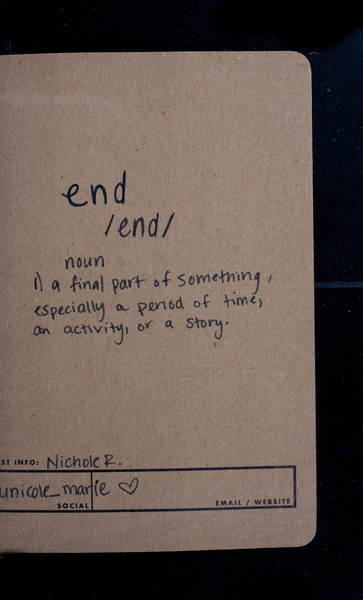 end
/end/
noun
1) a final part of something,
especially a period of time,
an activity, or a story.
ST INFO: Nichole R.
unicole_marie ♡
SOCIAL EMAIL / WEBSITE